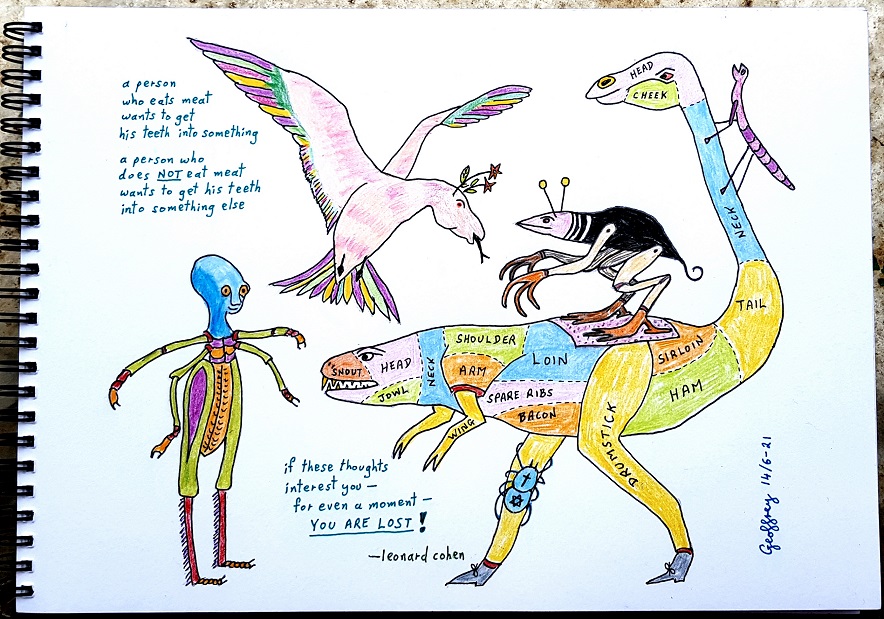 a person
who eats meat
wants to get
his teeth into something
a person who
does NOT eat meat
wants to get his teeth
into something else
HEAD
CHEEK
NECK
TAIL
SNOUT
HEAD
JOWL
NECK
SHOULDER
ARM
WING
LOIN
SPARE RIBS
BACON
SIRLOIN
HAM
DRUMSTICK
if these thoughts
interest you —
for even a moment —
YOU ARE LOST!
—leonard cohen
Geoffrey 14/6-21